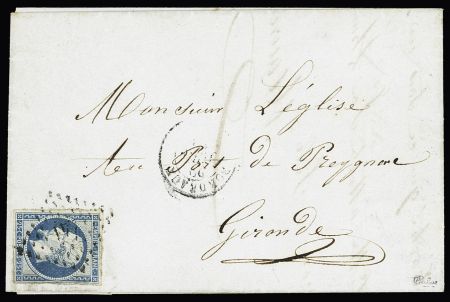 Monsieur L'église
Au Port de Preygnac
Gironde